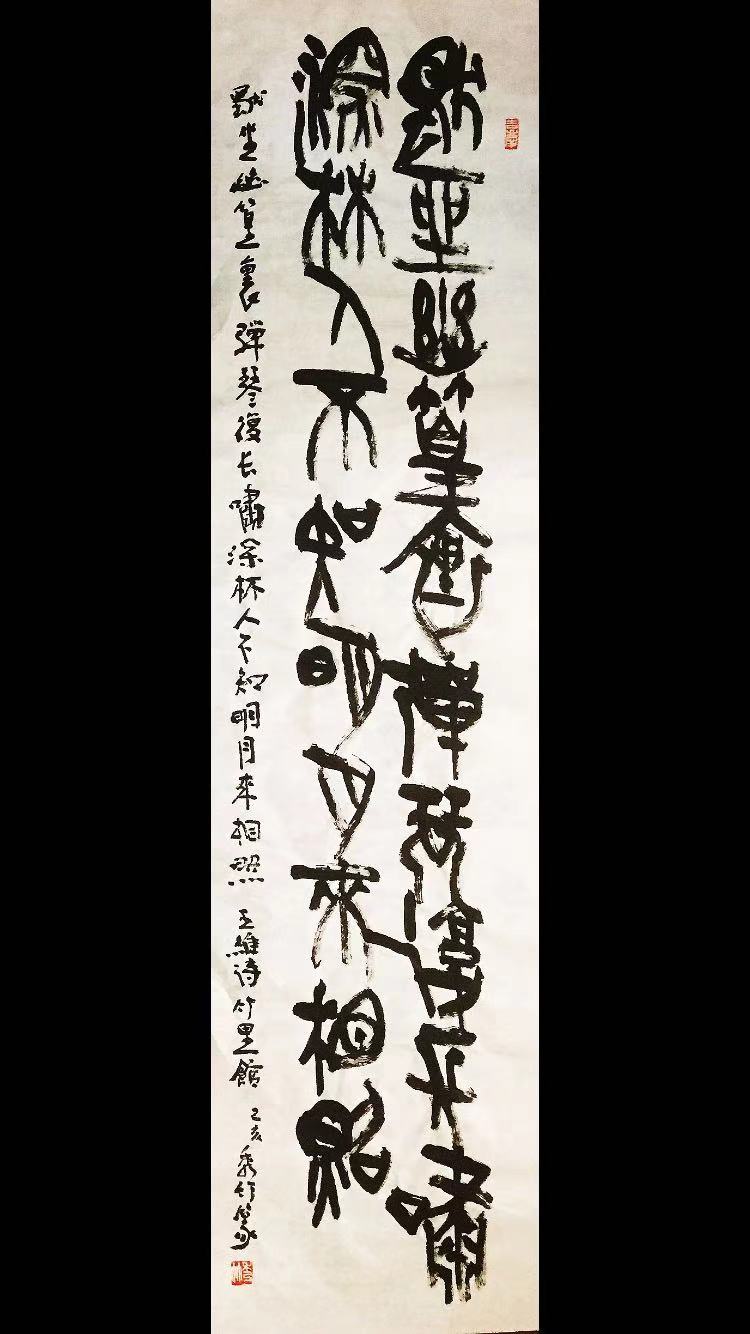 獨坐幽篁裏彈琴復長嘯
深林人不知明月來相照
獨坐幽篁裏彈琴復长嘯深林人不知明月來相照 王維诗竹里館 己亥 竹篆